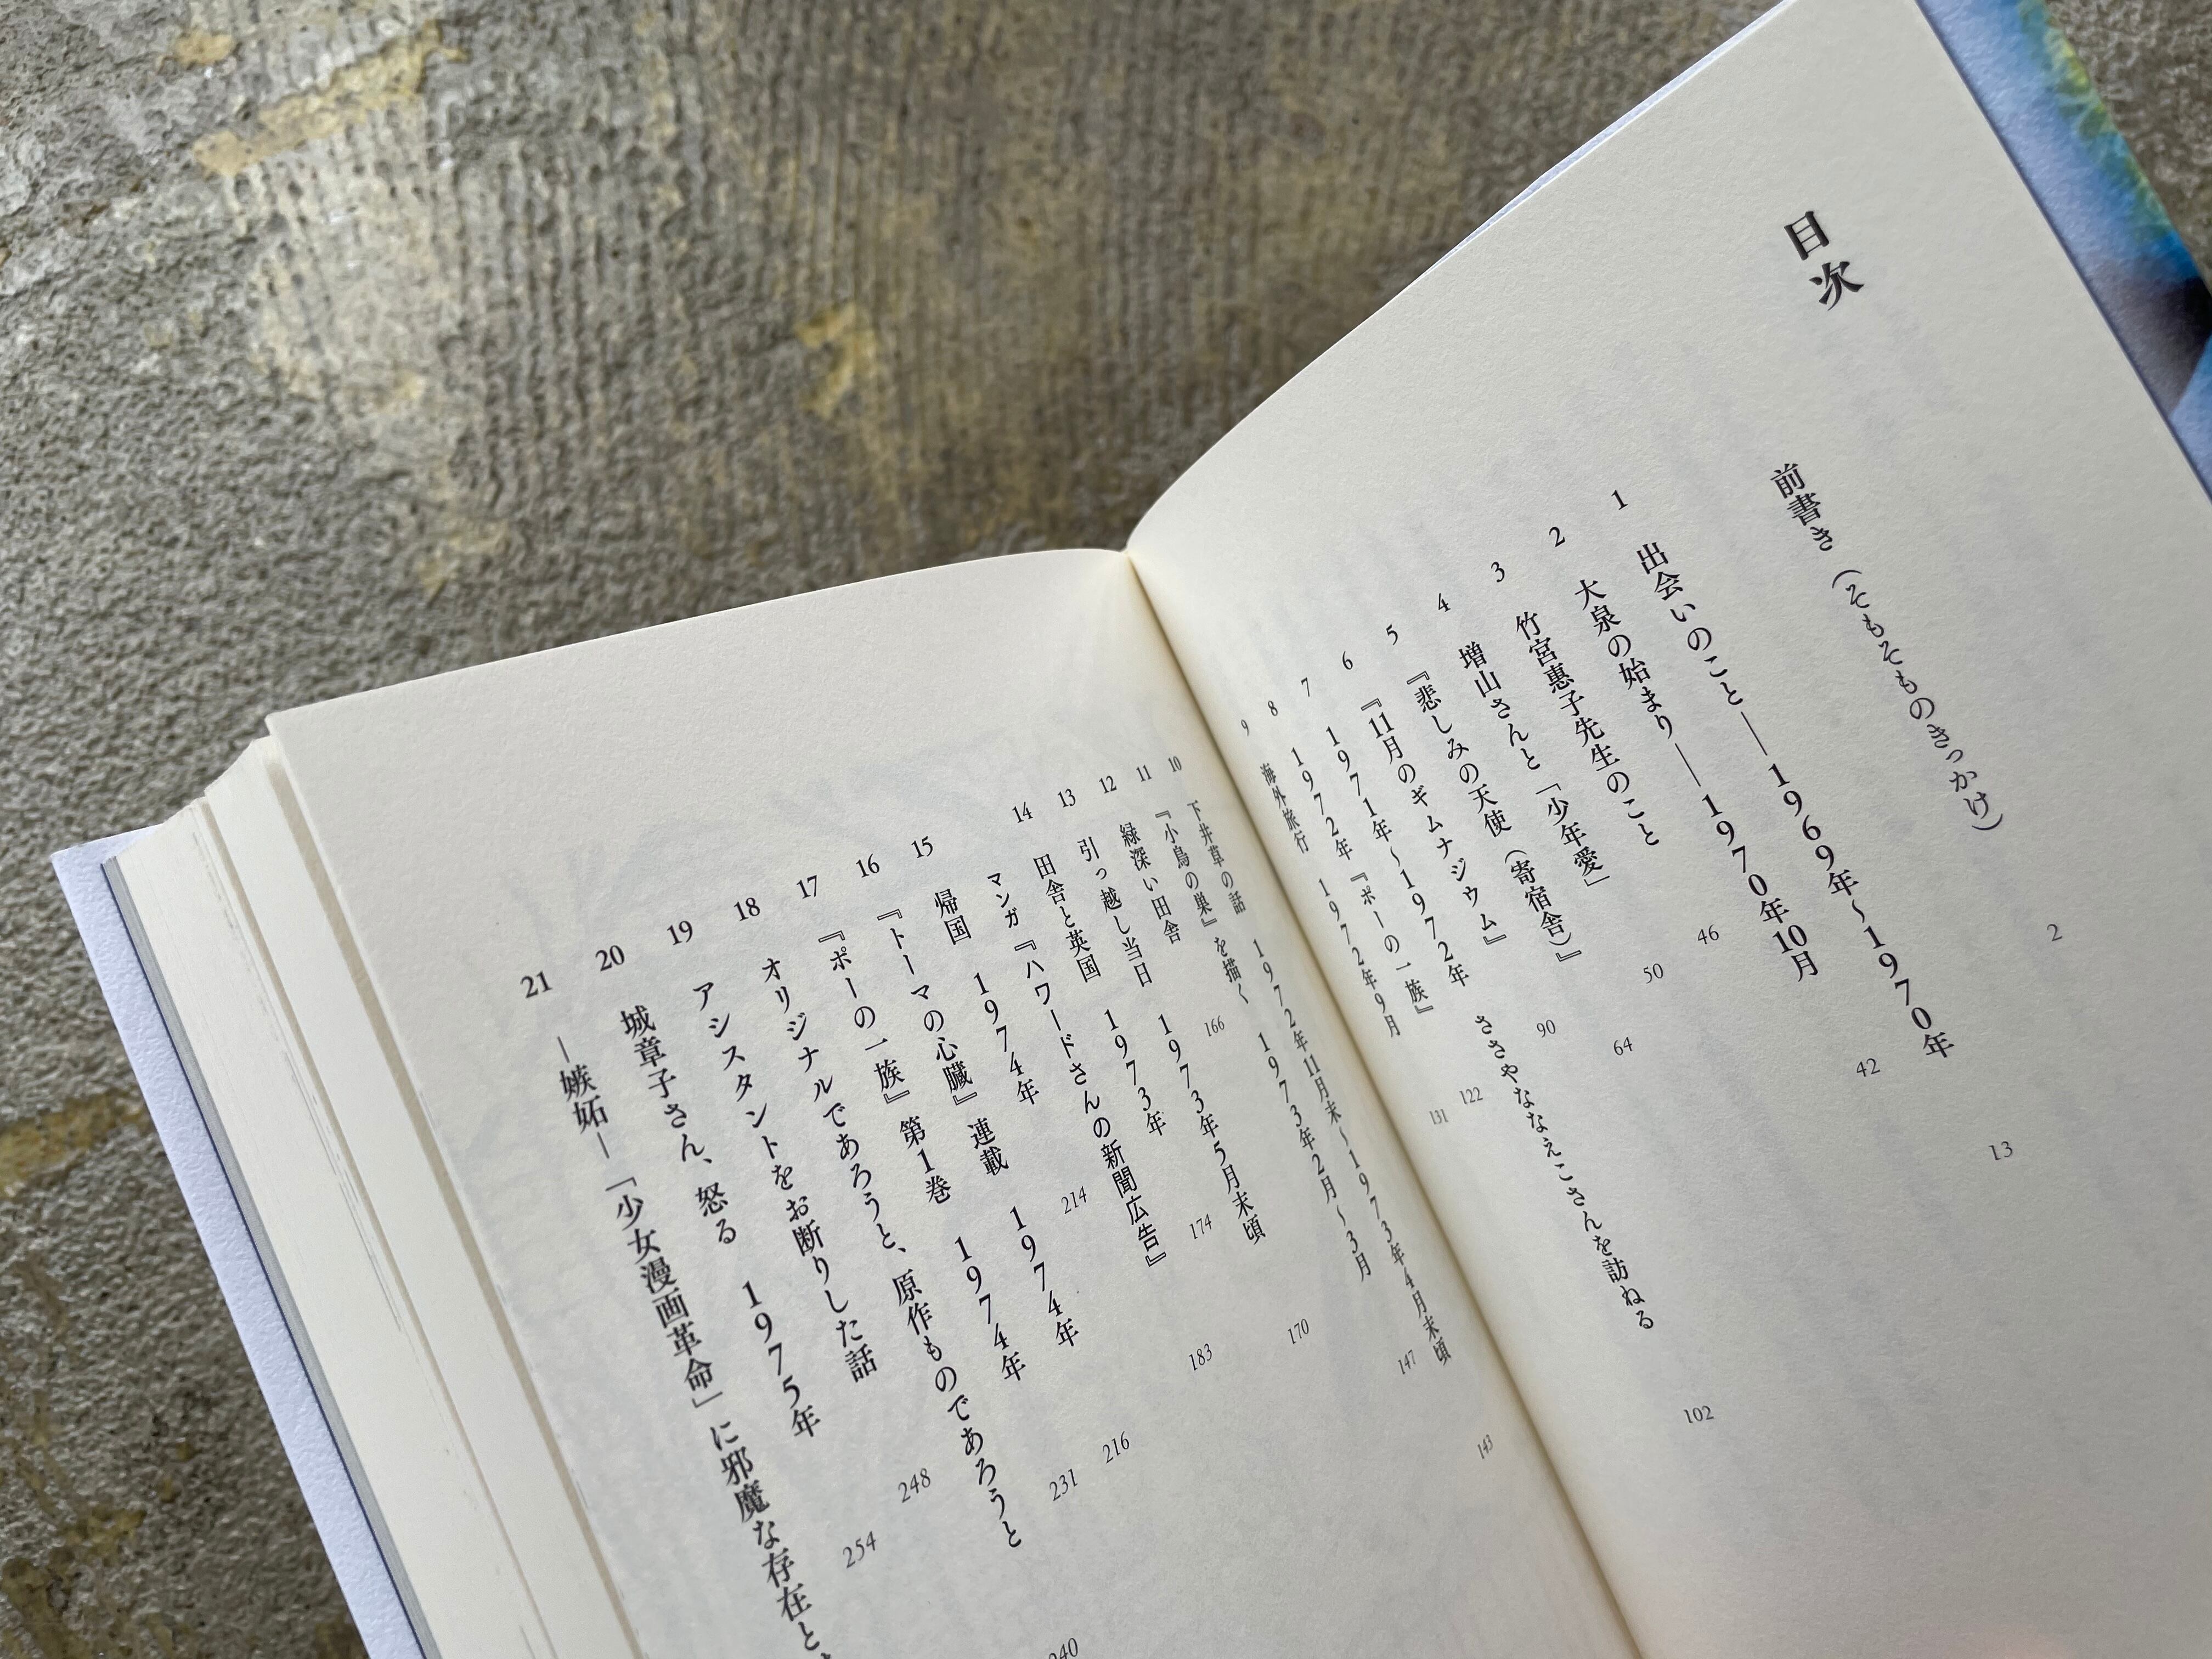 目次
前書き(そもそものきっかけ) 2
1 出会いのこと――1969年〜1970年 13
2 大泉の始まり――1970年10月 42
3 竹宮惠子先生のこと 46
4 増山さんと「少年愛」 50
5 『悲しみの天使(寄宿舎)』 64
6 『11月のギムナジウム』 90
7 1971年〜1972年 ささやななえこさんを訪ねる 102
8 1972年『ポーの一族』 122
9 海外旅行 1972年9月 131
10 下井草の話 1972年11月末〜1973年4月末頃 143
11 『小鳥の巣』を描く 1973年2月〜3月 147
12 緑深い田舎 166
13 引っ越し当日 1973年5月末頃 170
14 田舎と英国 1973年 174
マンガ『ハワードさんの新聞広告』 183
15 帰国 1974年 214
16 『トーマの心臓』連載 1974年 216
17 『ポーの一族』第1巻 1974年 231
18 オリジナルであろうと、原作ものであろうと 240
19 アシスタントをお断りした話 248
20 城章子さん、怒る 1975年 254
21 ―嫉妬―「少女漫画革命」に邪魔な存在と